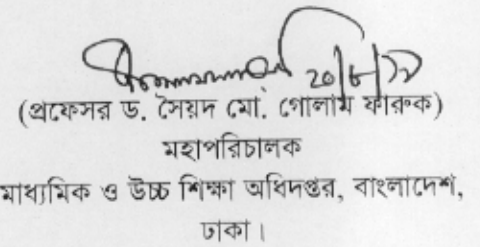 (প্রফেসর ড. সৈয়দ মো. গোলাম ফারুক)
মহাপরিচালক
মাধ্যমিক ও উচ্চ শিক্ষা অধিদপ্তর, বাংলাদেশ,
ঢাকা।